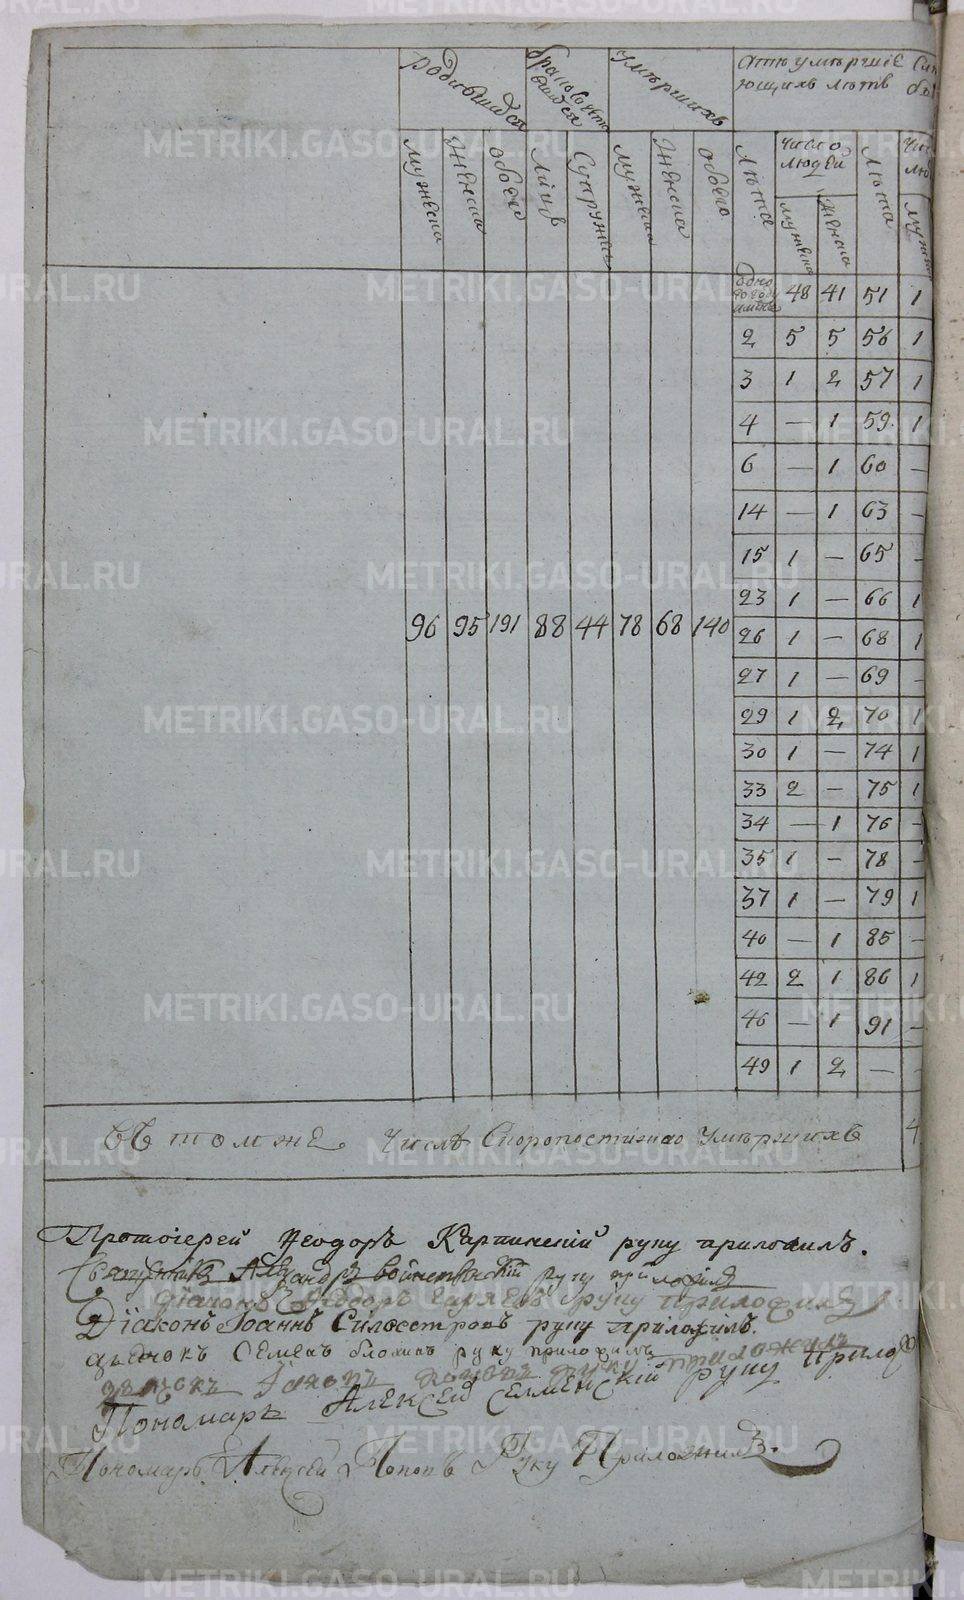 родившихся
умершихъ
от умершіе
ющихъ летъ
мужеска
женска
обоего
лицъ
супружес
мужеска
женска
обоего
лѣта
число людей
лѣта
мужеска
женска
48 41 51 1
2 5 5 56 1
3 1 2 57 1
4 — 1 59 1
6 — 1 60 —
14 — 1 63 —
15 1 — 65 —
23 1 — 66 1
96 95 191 88 44 78 68 140
26 1 — 68 1
27 1 — 69 —
29 1 2 70 1
30 1 — 74 1
33 2 — 75 1
34 — 1 76 —
35 1 — 78 —
37 1 — 79 1
40 — 1 85 —
42 2 1 86 1
46 — 1 91 —
49 1 2 — —
въ томже числѣ скоропостижно умершихъ 4
Протоіерей Ѳеодоръ Карпинскій руку приложилъ.
Священникъ Александръ войнственскій руку приложилъ
діаконъ Ѳеодоръ руку приложилъ
Діаконъ Іоаннъ Силвестровъ руку приложилъ.
дьячокъ Семенъ руку приложилъ
дьячокъ Іаковъ поповъ руку приложилъ
Пономарь Алексей Селменскій руку прилож
Пономарь Алексей Поповъ Руку Приложилъ.
METRIKI.GASO-URAL.RU